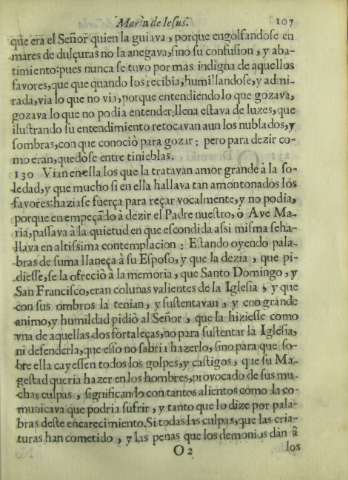 Maria de Iesus. 107
que era el Señor quien la guiava, porque engolfandose en
mares de dulçuras no la anegava, sino su confusion, y aba-
timiento: pues nunca se tuvo por mas indigna de aquellos
favores, que que quando los recibia, humillandose, y admi-
rada, via lo que no via, porque entendiendo lo que gozava,
gozava lo que no podia entender: llena estava de luzes, que
ilustrando su entendimiento retocavan aun los nublados, y
sombras, con que conociò para gozar; pero para dezir co-
mo eran, quedòse entre tinieblas.
130 Vian en ella los que la tratavan amor grande à la so-
ledad, y que mucho si en ella hallava tan amontonados los
favores: haziase fuerça para reçar vocalmente, y no podia,
porque en empeçãdo à dezir el Padre nuestro, ò Ave Ma-
ria, passava à la quietud en que escondida asi misma se ha-
llava en altissima contemplacion: Estando oyendo pala-
bras de suma llaneça à su Esposo, y que la dezia, que pi-
diesse, se la ofreciò à la memoria, que Santo Domingo, y
San Francisco, eran colunas valientes de la Iglesia, y que
con sus ombros la tenian, y sustentavan, y con grande
animo, y humildad pidiò al Señor, que la hiziesse como
vna de aquellas dos fortaleças, no para sustentar la Iglesia,
ni defenderla, que esso no sabria hazerlo, sino para que so-
bre ella cayessen todos los golpes, y castigos, que su Ma-
gestad queria hazer en los hombres, provocado de sus mu-
chas culpas, significando con tantos alientos como la co-
municava que podria sufrir, y tanto que lo dize por pala-
bras deste encarecimiento. Si todas las culpas, que las cria-
turas han cometido, y las penas que los demonios dan à
O 2 los